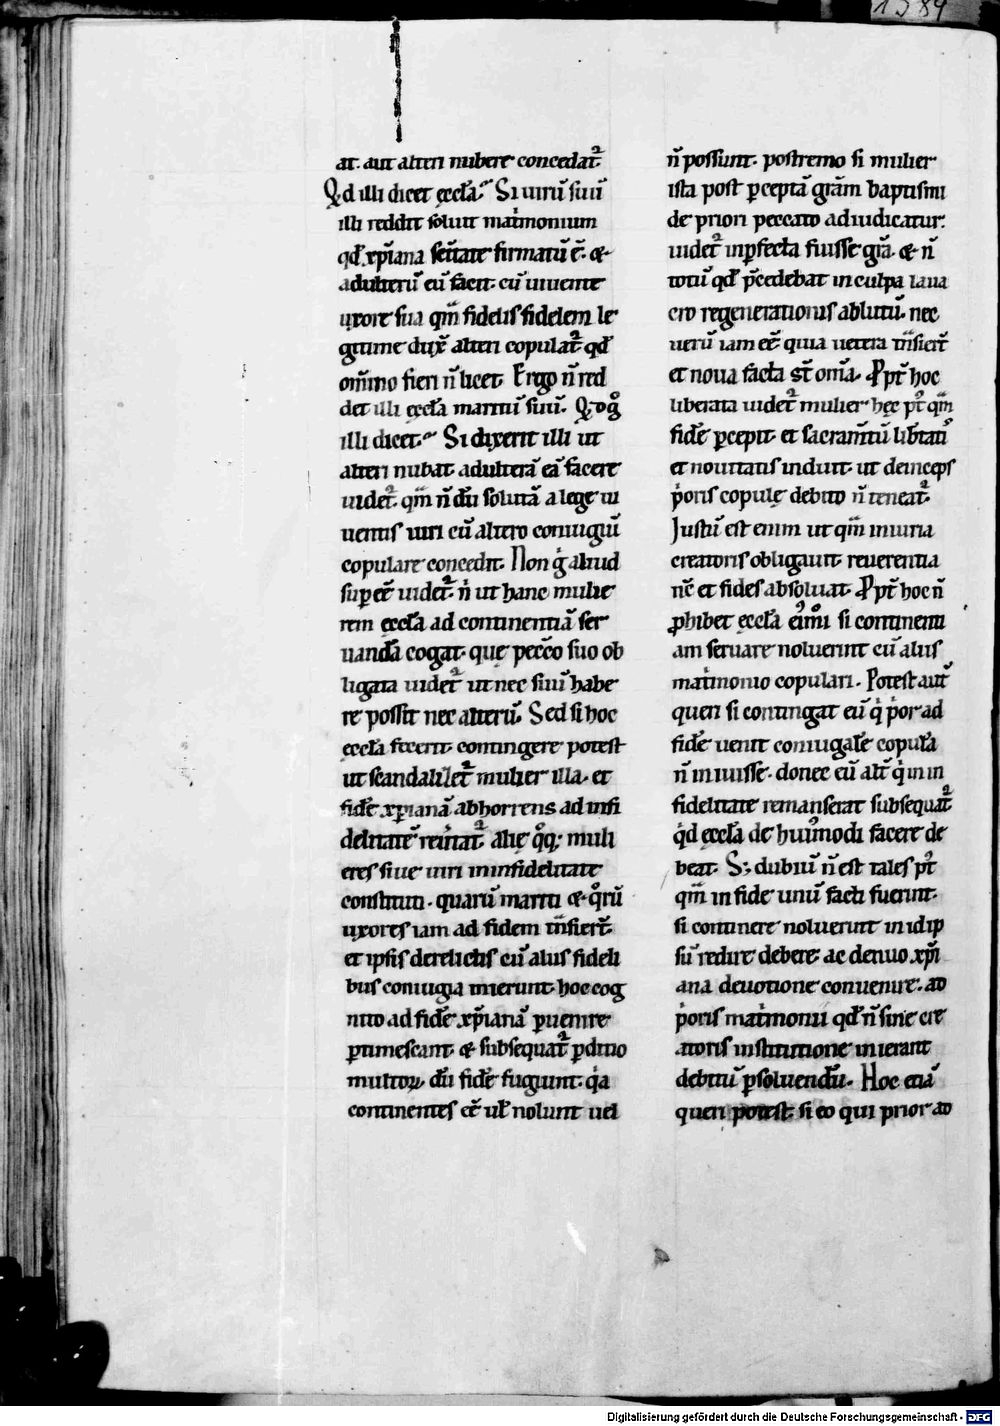 1584
at. aut alteri nubere concedat᷑
Q̨d illi dicet ęccl̄a. Si uirū suū
illi reddit soluit mat̍monium
qd̄ xp̄iana seūitate firmatū ē. &
adulterū eū facit. cū uiuente
uxore sua qm̄ fidelis fidelem le
gitime dux̄ alteri copulat᷑ qd̄
om̄ino fieri n̄ licet. Ergo n̄ red
det illi ęccl̄a maritū suū. Q̨d gͦ
illi dicet. Si dixerit illi ut
alteri nubat adulterā eā facere
uidet᷑. qm̄ n̄dū solutā a lege ui
uentis uiri cū altero coniugiū
copulare concedit. Non g̍ aliud
sup eē uidet᷑. n̍ ut hanc mulie
rem ęccl̄a ad continentiā ser
uandā cogat. quę pecc̄o suo ob
ligata uidet᷑ ut nec suū habe
re possit nec alterū. Sed si hoc
ęccl̄a fecerit contingere potest
ut scandalizet᷑ mulier illa. et
fidē xp̄ianā abhorrens ad infi
delitatē reūtat᷑. alię qͦq; muli
eres siue uiri in infidelitate
constituti. quarū mariti & qͦrū
uxores iam ad fidem t̄nsiert̄.
et ipsis derelictis cū aliis fideli
bus coniugia inierunt. hoc cog
nito ad fidē xp̄ianā ꝑuenire
ꝑtimescant. & subsequat᷑ ꝑditio
multoꝝ dū fidē fugiunt. q̍a
continentes eē uł nolunt uel
n̄ possunt. postremo si mulier
ista post ꝑceptā grām baptismi
de priori peccato adiudicatur.
uidet᷑ inꝑfecta fuisse grā. & n̄
totū qd̄ p̄cedebat in culpa laua
cro regenerationis ablutū. nec
uerū iam eē quia uetera t̄nsiert̄
et noua facta st̄ om̄a. Ppt̄ hoc
liberata uidet᷑ mulier hęc pͭ qm̄
fidē ꝑcepit. et sacram̄tū lib̄tatis
et nouitatis induit. ut deinceps
p̍oris copulę debito n̄ teneat᷑.
Justū est enim ut qm̄ iniuria
creatoris obligauit. reuerentia
nc̄ et fides absoluat. Ppt̄ hoc n̄
ꝓhibet ęccl̄a ei᷒mͦi si continenti
am seruare noluerint cū aliis
mat̍monio copulari. Potest aut̄
queri si contingat eū q̍ p̍or ad
fidē uenit coniugalē copulā
n̄ iniuisse. donec eū alt̄ q̍ in in
fidelitate remanserat subsequat᷑
q̍d ęccl̄a de huiusmodi facere de
beat. S; dubiū n̄ est tales pͭ
qm̄ in fide unū facti fuerint.
si continere noluerint in idip
sū redire debere. ac denuo xp̄i
ana deuotione conuenire. ad
p̍oris mat̍monii qd̄ n̄ sine cre
atoris institutione inierant
debitū ꝑsoluendū. Hoc etiā
queri potest. si eo qui prior ad
Digitalisierung gefördert durch die Deutsche Forschungsgemeinschaft - DFG